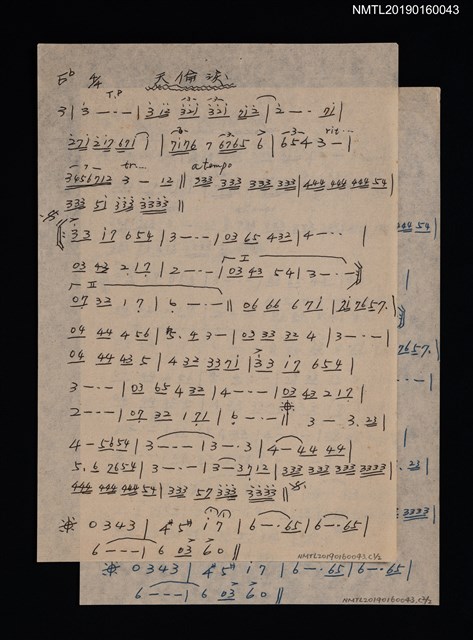 NMTL20190160043
E♭ 4/4 天倫淚
T.P
3 | 3 - - - | 3 12 321 321 712 | 2 - - 71 |
rit...
271 217 671 | 7176 7 6765 6 | 6543 - |
tr... a tempo
3456712 3 - 12 || 333 333 333 333 | 444 444 444 54 |
333 51 333 3333 ||
||: 33 17 6 54 | 3 - - - | 03 65 432 | 4 - - - |
II
03 43 2 17 | 2 - - - | 03 43 54 | 3 - - - :||
II
07 32 17 | 6 - - - || 06 66 671 | 21 7657. |
04 44 456 | 5. 43 - | 03 33 32 4 | 3 - - - |
04 44 43 5 | 4 32 3371 | 33 17 654 |
3 - - - | 03 65 432 | 4 - - - | 03 43 217 |
2 - - - | 07 32 171 | 6 - - - || 3 - 3. 23 |
4 - 5654 | 3 - - - | 3 - - 3 | 4 - 44 44 |
5. 6 7654 | 3 - - - | 3 - 3712 | 333 333 333 3333 |
444 444 444 54 | 333 57 333 3333 ||
0343 | 4# 5# 17 | 6 - - 65 | 6 - - 65 |
6 - - - | 6 03 60 ||
NMTL20190160043, c1/2
0343 | 4# 5# 17 | 6 - - 65 | 6 - - 65 |
6 - - - | 6 03 60 ||
NMTL20190160043, c2/2